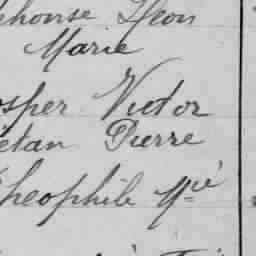 phonse Léon
Marie
osper Victor
étan Pierre
Théophile Mie